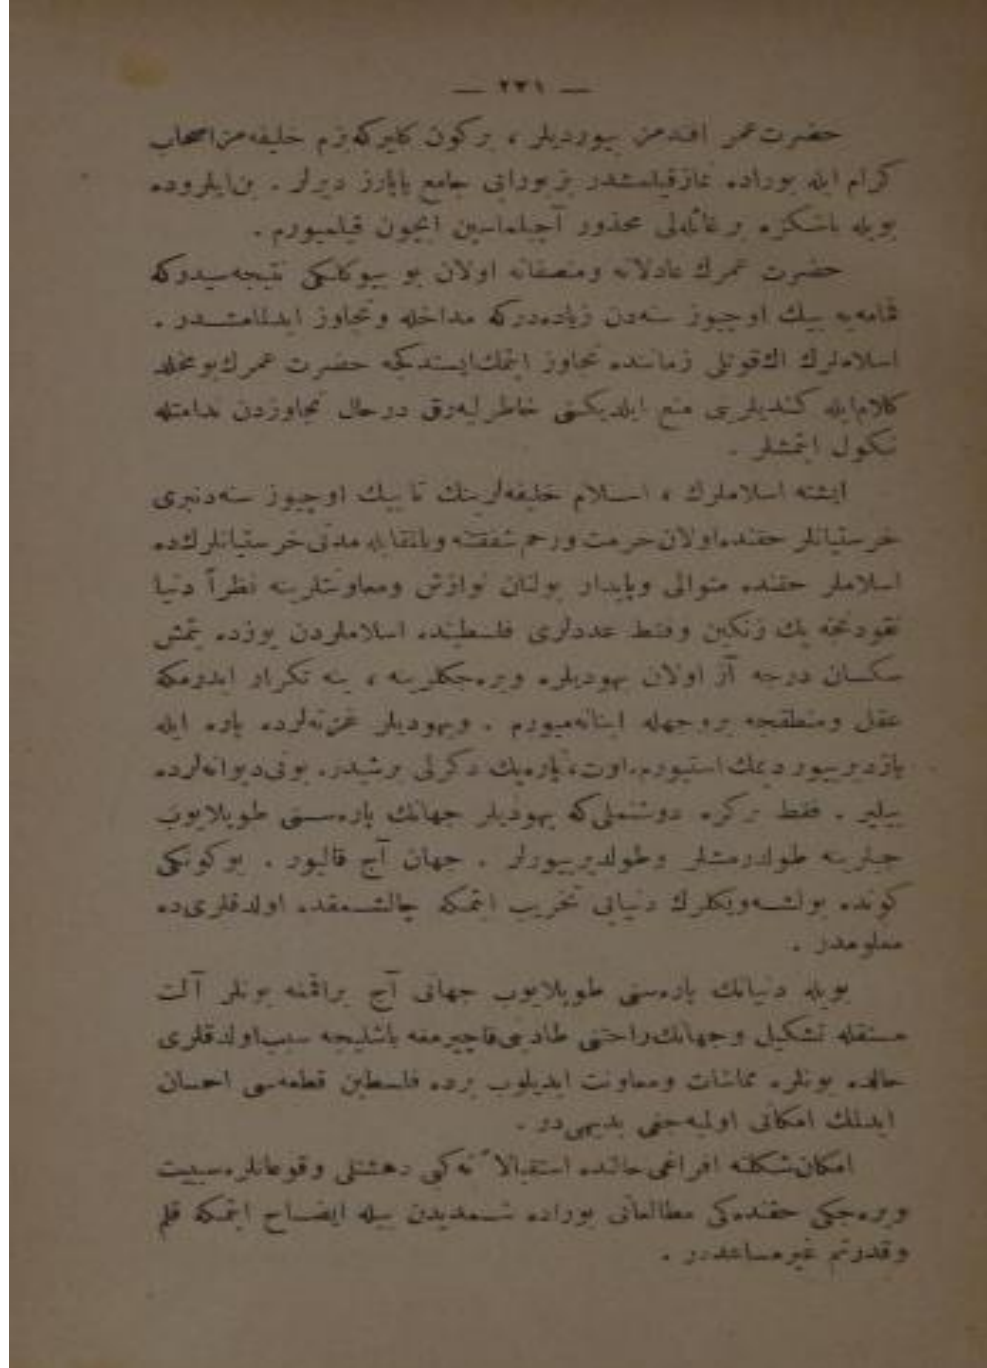 — ٢٣١ —
حضرت عمر افندمز بیوردیلر ، برکون کلیرکه بزم خلیفه‌مز اصحاب
کرام ایله بوراده نماز قیلمشدر بز بورایی جامع یاپارز دیرلر . بن ایلروده
بویله باشکزه بر غائله‌لی محذور آچیلماسین ایچون قیلمیورم .
حضرت عمرك عادلانه ومنصفانه اولان بو بیوکلکی نتیجه‌سیدرکه
قمامه‌یه بیك اوچیوز سنه‌دن زیاده‌درکه مداخله وتجاوز ایدلمامشدر .
اسلاملرك اك قوتلی زماننده تجاوز ایتمك ایستدکجه حضرت عمرك بو مخلد
کلام ایله کندیلری منع ایلدیکنی خاطرلیه‌رق درحال تجاوزدن ندامتله
نکول ایتمشلر .
ایشته اسلاملرك ، اسلام خلیفه‌لرینك تا بیك اوچیوز سنه‌دنبری
خرستیانلر حقنده اولان حرمت ورحم شفقتنه وبالمقابله مدنی خرستیانلرك ده
اسلاملر حقنده متوالی وپایدار بولنان نوازش ومعاونتلرینه نظراً دنیا
نقودنجه پك زنکین وفقط عددلری فلسطینده اسلاملردن یوزده یتمش
سکسان درجه آز اولان یهودیلره ویره‌جکلرینه ، ینه تکرار ایدرمکه
عقل ومنطقجه بروجهله اینانه‌میورم . ویهودیلر غزته‌لرده پاره ایله
یازدیرییور دیمك استیورم. اوت، پاره پك دکرلی برشیدر. بونی دیوانه‌لرده
بیلیر . فقط برکره دوشنملی که یهودیلر جهانك پاره‌سنی طوپلایوب
جبلرینه طولدرمشلر وطولدیرییورلر . جهان آج قالیور . بوکونکی
کونده بولشه‌ویکلرك دنیایی تخریب ایتمکه چالشمقده اولدقلری ده
معلومدر .
بویله دنیانك پاره‌سنی طوپلایوب جهانی آج براقمه بونلر آلت
مستقله تشکیل وجهانك راحتی طادینی قاچیرمغه باشلیجه سبب اولدقلری
حالده بونلره مماشات ومعاونت ایدیلوب برده فلسطین قطعه‌سی احسان
ایدلمك امکانی اولمیه‌جنی بدیهی در .
امکان شکلنه افراغی حالنده استقبالاً نه‌کبی دهشتلی وقوعاتلره سببیت
ویره‌جکی حقنده‌کی مطالعاتی بوراده شمدیدن بیله ایضاح ایتمکه قلم
وقدرتم غیرمساعددر .